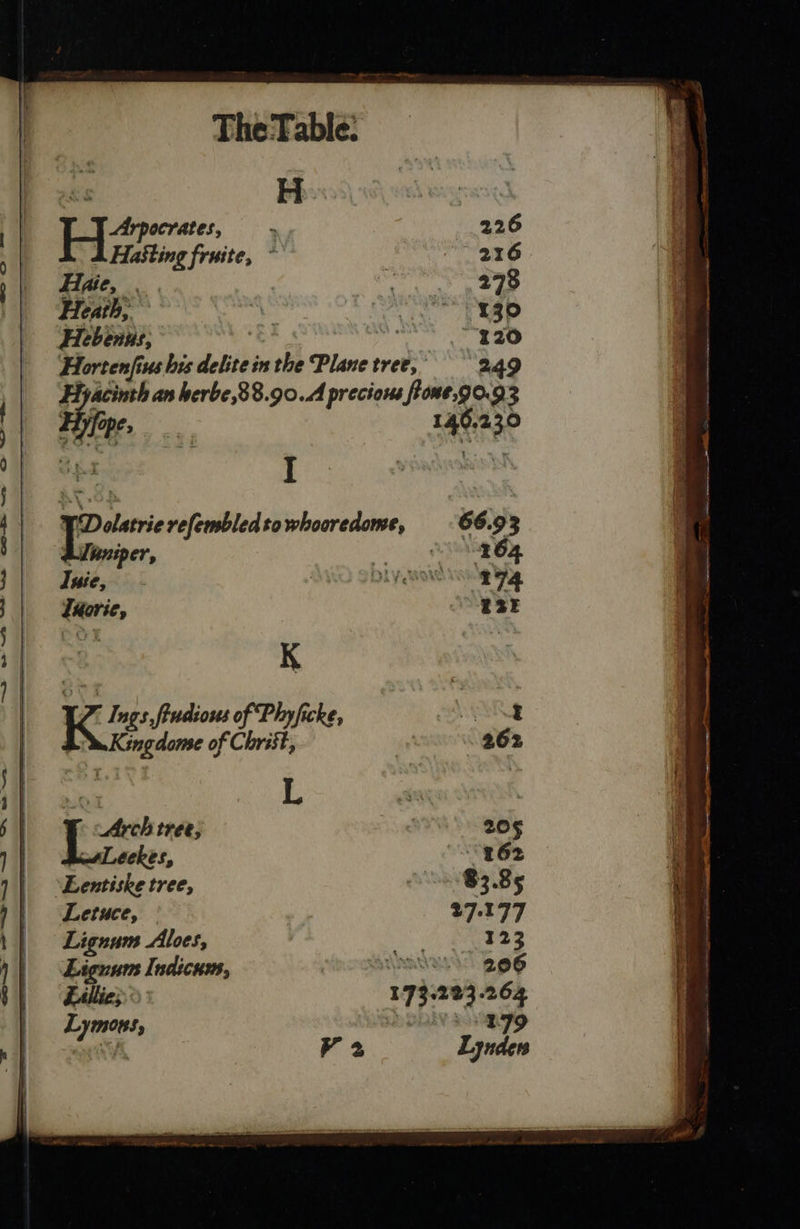 The Table.
H
HArpocrates, 226
Hasting fruite, 216
Haie, 278
Heath, 130
Hebenus, 120
Hortenſius his delite in the Plane tree, 249
Hyacinth an herbe,88.90. A precious ſtone,90.93
Hyſope, 146.230
I
IDolatrie reſembled to whooredome, 66.93
Iuniper, 164
Iuie, 174
Iuorie, 121
K
KIngs, ſtudious of Phyſicke, 1
Kingdome of Christ, 262
L
LArch tree, 205
Leekes, 162
Lentiske tree, 83.85
Letuce, 27.177
Lignum Aloes, 123
Lignum Indicum, 206
Lillie, 173.223.264
Lymons, 179
V 2 Lynden